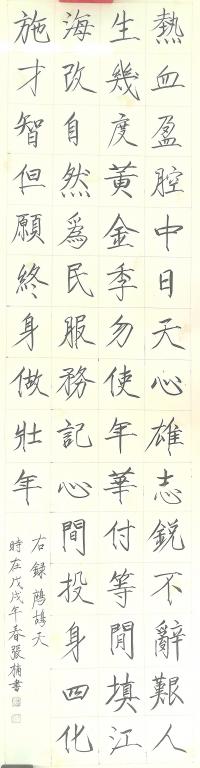 熱血盈腔中日天心雄志銳不辭艱人
生幾度黃金季勿使年華付等閒填江
海改自然為民服務記心間投身四化
施才智但願終身做壯年
右錄鷓鴣天
時在戊戌午春張楠書